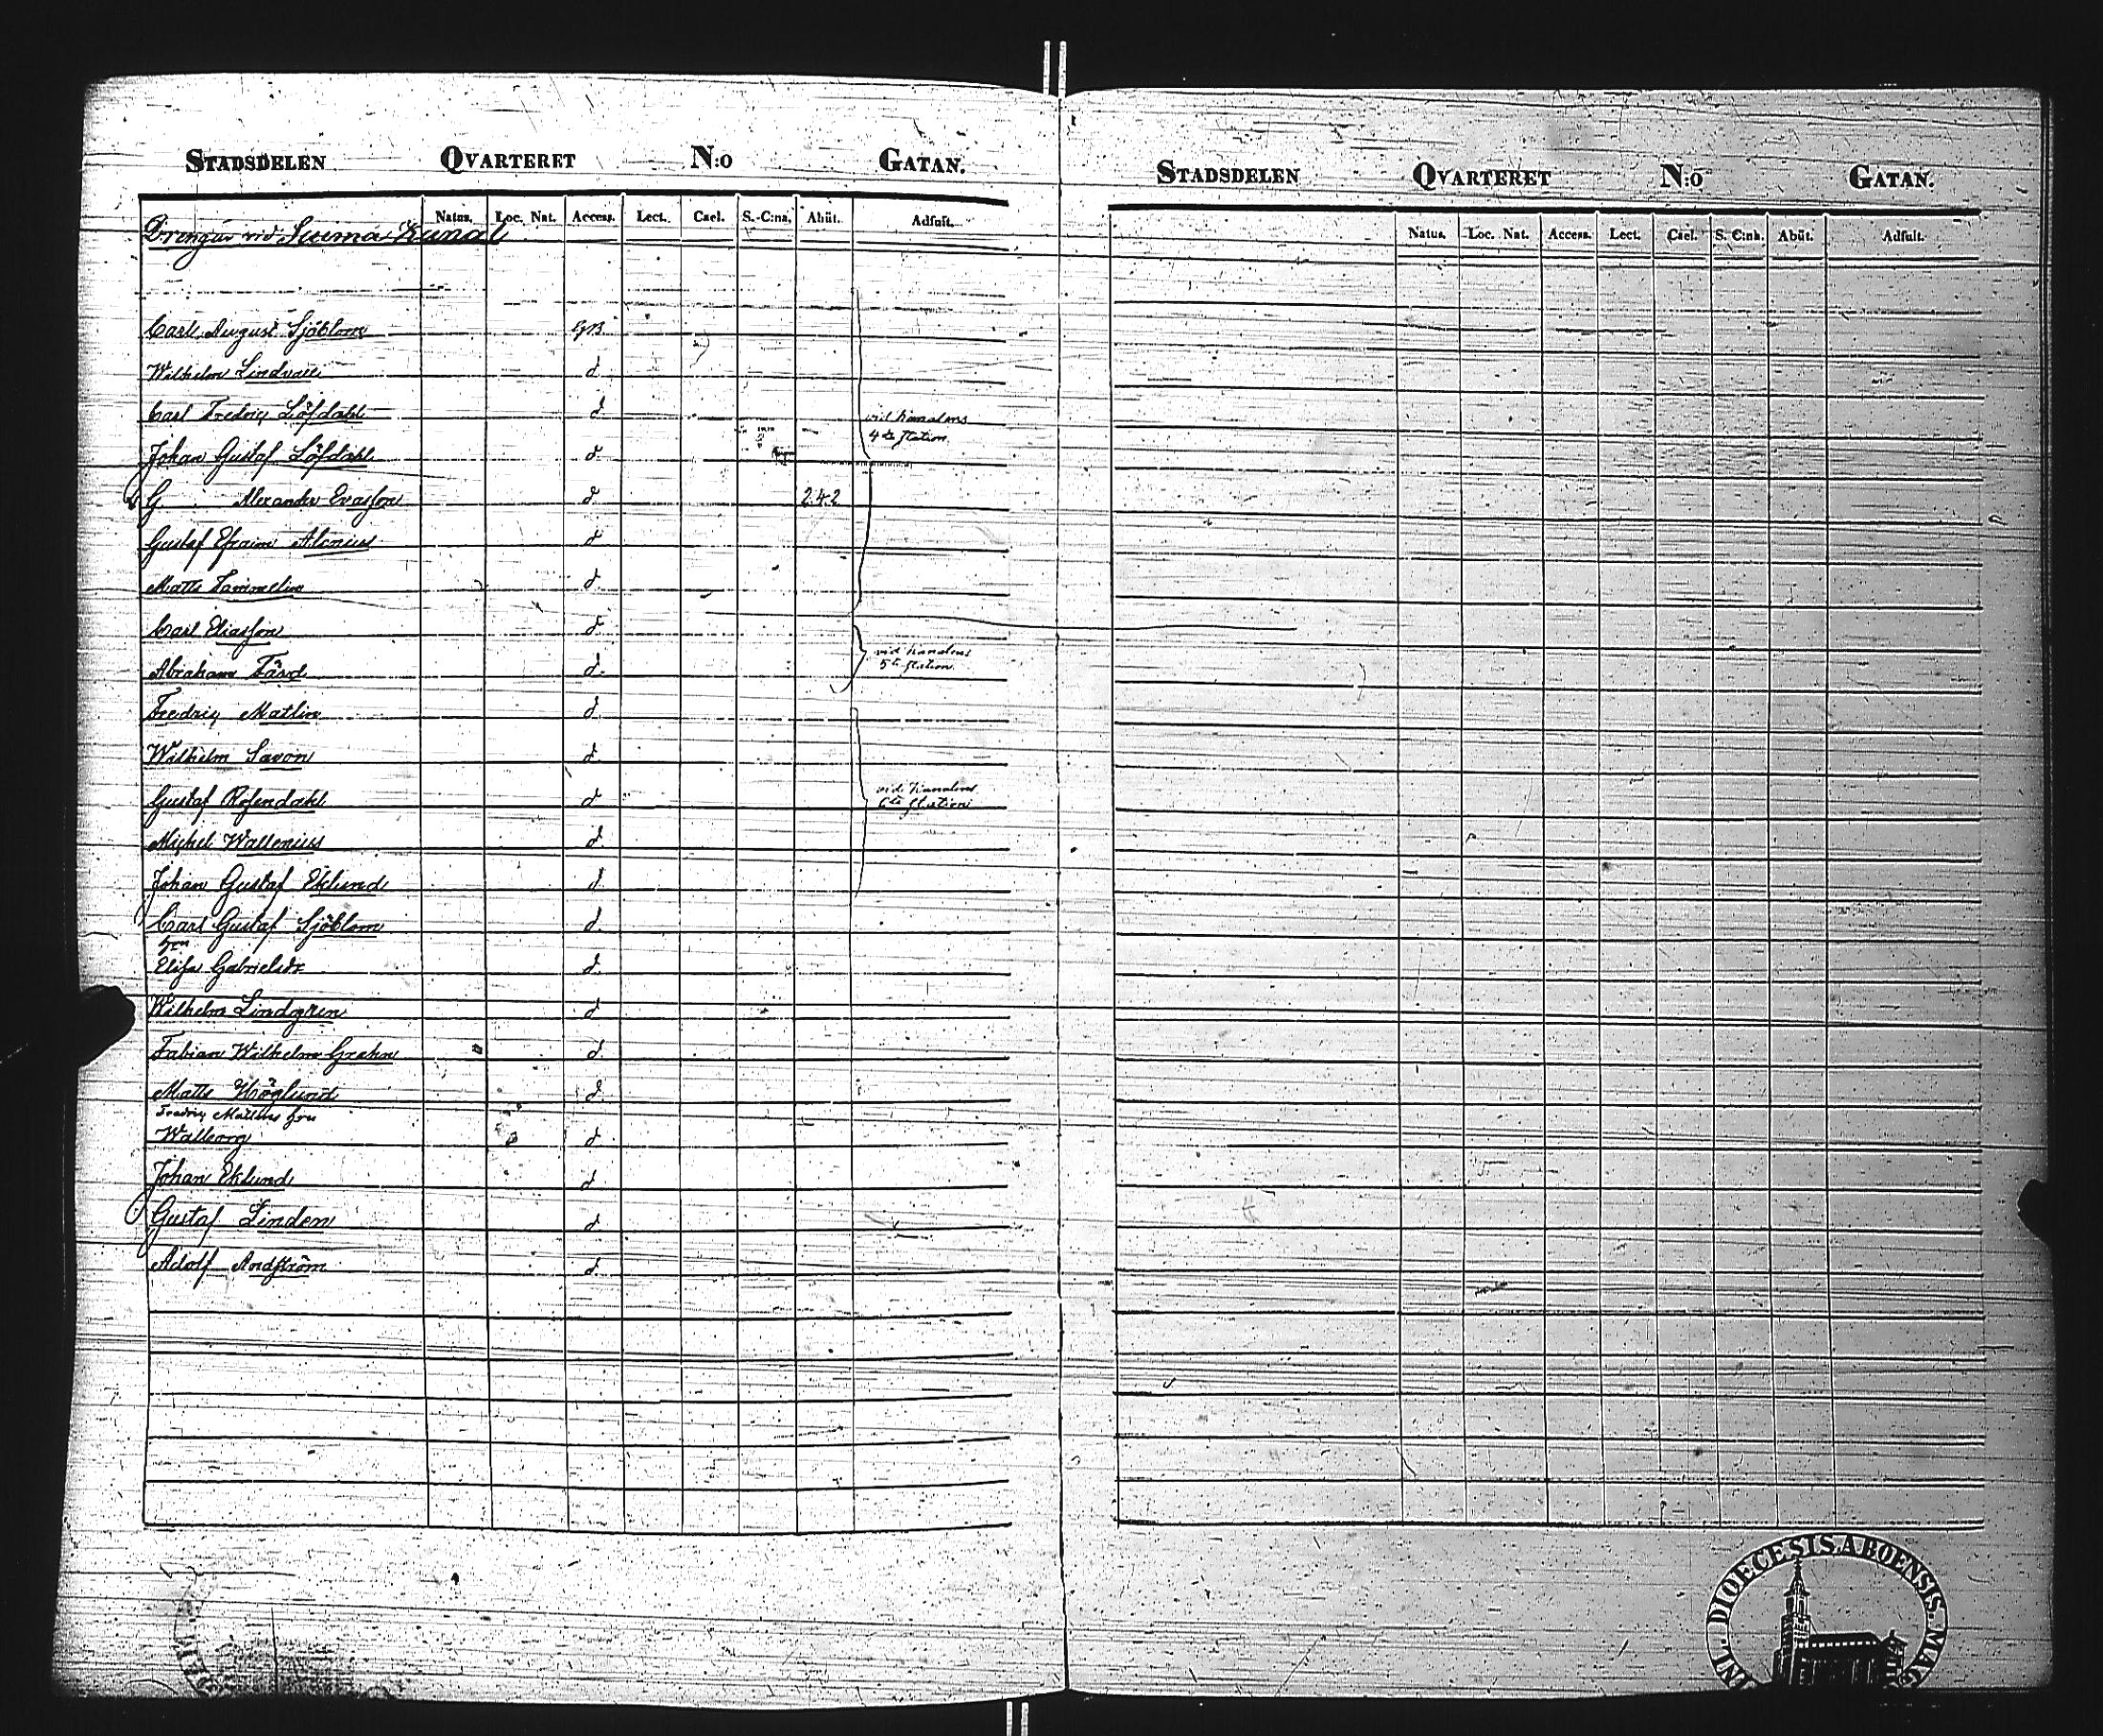 STADSDELEN QVARTERET N:O GATAN.
Natus. Loc. Nat. Access. Lect. Cael. S.-C:na. Abiit. Adfuit.
Drengar vid Saima Kanal
Carl August Sjöblom
Wilhelm Lindvall d
Carl Fredric Löfdahl d
vid kanalens
4de station
Johan Gustaf Löfdahl d
G Alexander Erasson d 242
Gustaf Efraim Alenius d
Matts Tammelin d
Carl Eliasson d
vid kanalens
5te station
Abraham Färd d
Fredric Matlin d
Wilhelm Savon d
vid kanalens
6te station
Gustaf Rosendahl d
Michel Wallenius d
Johan Gustaf Eklund d
Carl Gustaf Sjöblom d
hru
Elisa Gabrielsdr d
Wilhelm Lindgren d
Fabian Wilhelm Grahn d
Matts Höglund d
Fredric Matlins hru
Walborg d
Johan Eklund d
Gustaf Linden d
Adolf Andström d
STADSDELEN QVARTERET N:O GATAN.
Natus. Loc. Nat. Access. Lect. Cael. S. C:na. Abiit. Adfuit.
DIOECESIS ABOENSIS